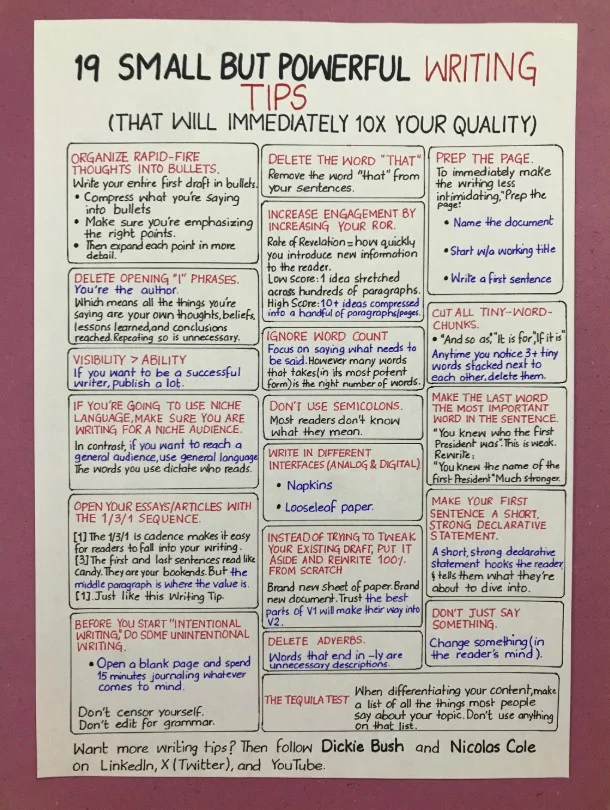 19 SMALL BUT POWERFUL WRITING
TIPS
(THAT WILL IMMEDIATELY 10X YOUR QUALITY)
ORGANIZE RAPID-FIRE
THOUGHTS INTO BULLETS.
Write your entire first draft in bullets.
• Compress what you're saying
into bullets
• Make sure you're emphasizing
the right points.
• Then expand each point in more
detail.
DELETE OPENING "I" PHRASES.
You're the author.
Which means all the things you're
saying are your own thoughts, beliefs,
lessons learned, and conclusions
reached. Repeating so is unnecessary.
VISIBILITY > ABILITY
If you want to be a successful
writer, publish a lot.
IF YOU'RE GOING TO USE NICHE
LANGUAGE, MAKE SURE YOU ARE
WRITING FOR A NICHE AUDIENCE.
In contrast, if you want to reach a
general audience, use general language
The words you use dictate who reads.
OPEN YOUR ESSAYS/ARTICLES WITH
THE 1/3/1 SEQUENCE.
[1] The 1/3/1 is cadence makes it easy
for readers to fall into your writing.
[3] The first and last sentences read like
Candy. They are your bookends. But the
middle paragraph is where the value is.
[1]. Just like this Writing Tip.
BEFORE YOU START "INTENTIONAL
WRITING," DO SOME UNINTENTIONAL
WRITING.
• Open a blank page and spend
15 minutes journaling whatever
comes to mind.
Don't censor yourself.
Don't edit for grammar.
DELETE THE WORD "THAT"
Remove the word "that" from
your sentences.
INCREASE ENGAGEMENT BY
INCREASING YOUR ROR.
Rate of Revelation = how quickly
you introduce new information
to the reader.
Low Score: 1 idea stretched
across hundreds of paragraphs.
High Score: 10+ ideas compressed
into a handful of paragraphs/pages.
IGNORE WORD COUNT
Focus on saying what needs to
be said. However many words
that takes (in its most potent
form) is the right number of words.
DON'T USE SEMICOLONS.
Most readers don't know
what they mean.
WRITE IN DIFFERENT
INTERFACES (ANALOG & DIGITAL)
• Napkins
• Looseleaf paper.
INSTEAD OF TRYING TO TWEAK
YOUR EXISTING DRAFT, PUT IT
ASIDE AND REWRITE 100%
FROM SCRATCH
Brand new sheet of paper. Brand
new document. Trust the best
parts of V1 will make their way into
V2.
DELETE ADVERBS.
Words that end in -ly are
unnecessary descriptions.
PREP THE PAGE.
To immediately make
the writing less
intimidating, "Prep the
page:
• Name the document
• Start w/a working title
• Write a first sentence
CUT ALL TINY-WORD-
CHUNKS.
• "And so as," "It is for," "If it is"
Anytime you notice 3+ tiny
words stacked next to
each other, delete them.
MAKE THE LAST WORD
THE MOST IMPORTANT
WORD IN THE SENTENCE.
"You knew who the first
President was". This is weak.
Rewrite:
"You knew the name of the
first President" Much stronger.
MAKE YOUR FIRST
SENTENCE A SHORT,
STRONG DECLARATIVE
STATEMENT.
A short, strong declarative
statement hooks the reader
& tells them what they're
about to dive into.
DON'T JUST SAY
SOMETHING.
Change something (in
the reader's mind).
THE TEQUILA TEST
When differentiating your content, make
a list of all the things most people
say about your topic. Don't use anything
on that list.
Want more writing tips? Then follow Dickie Bush and Nicolas Cole
on LinkedIn, X (Twitter), and YouTube.